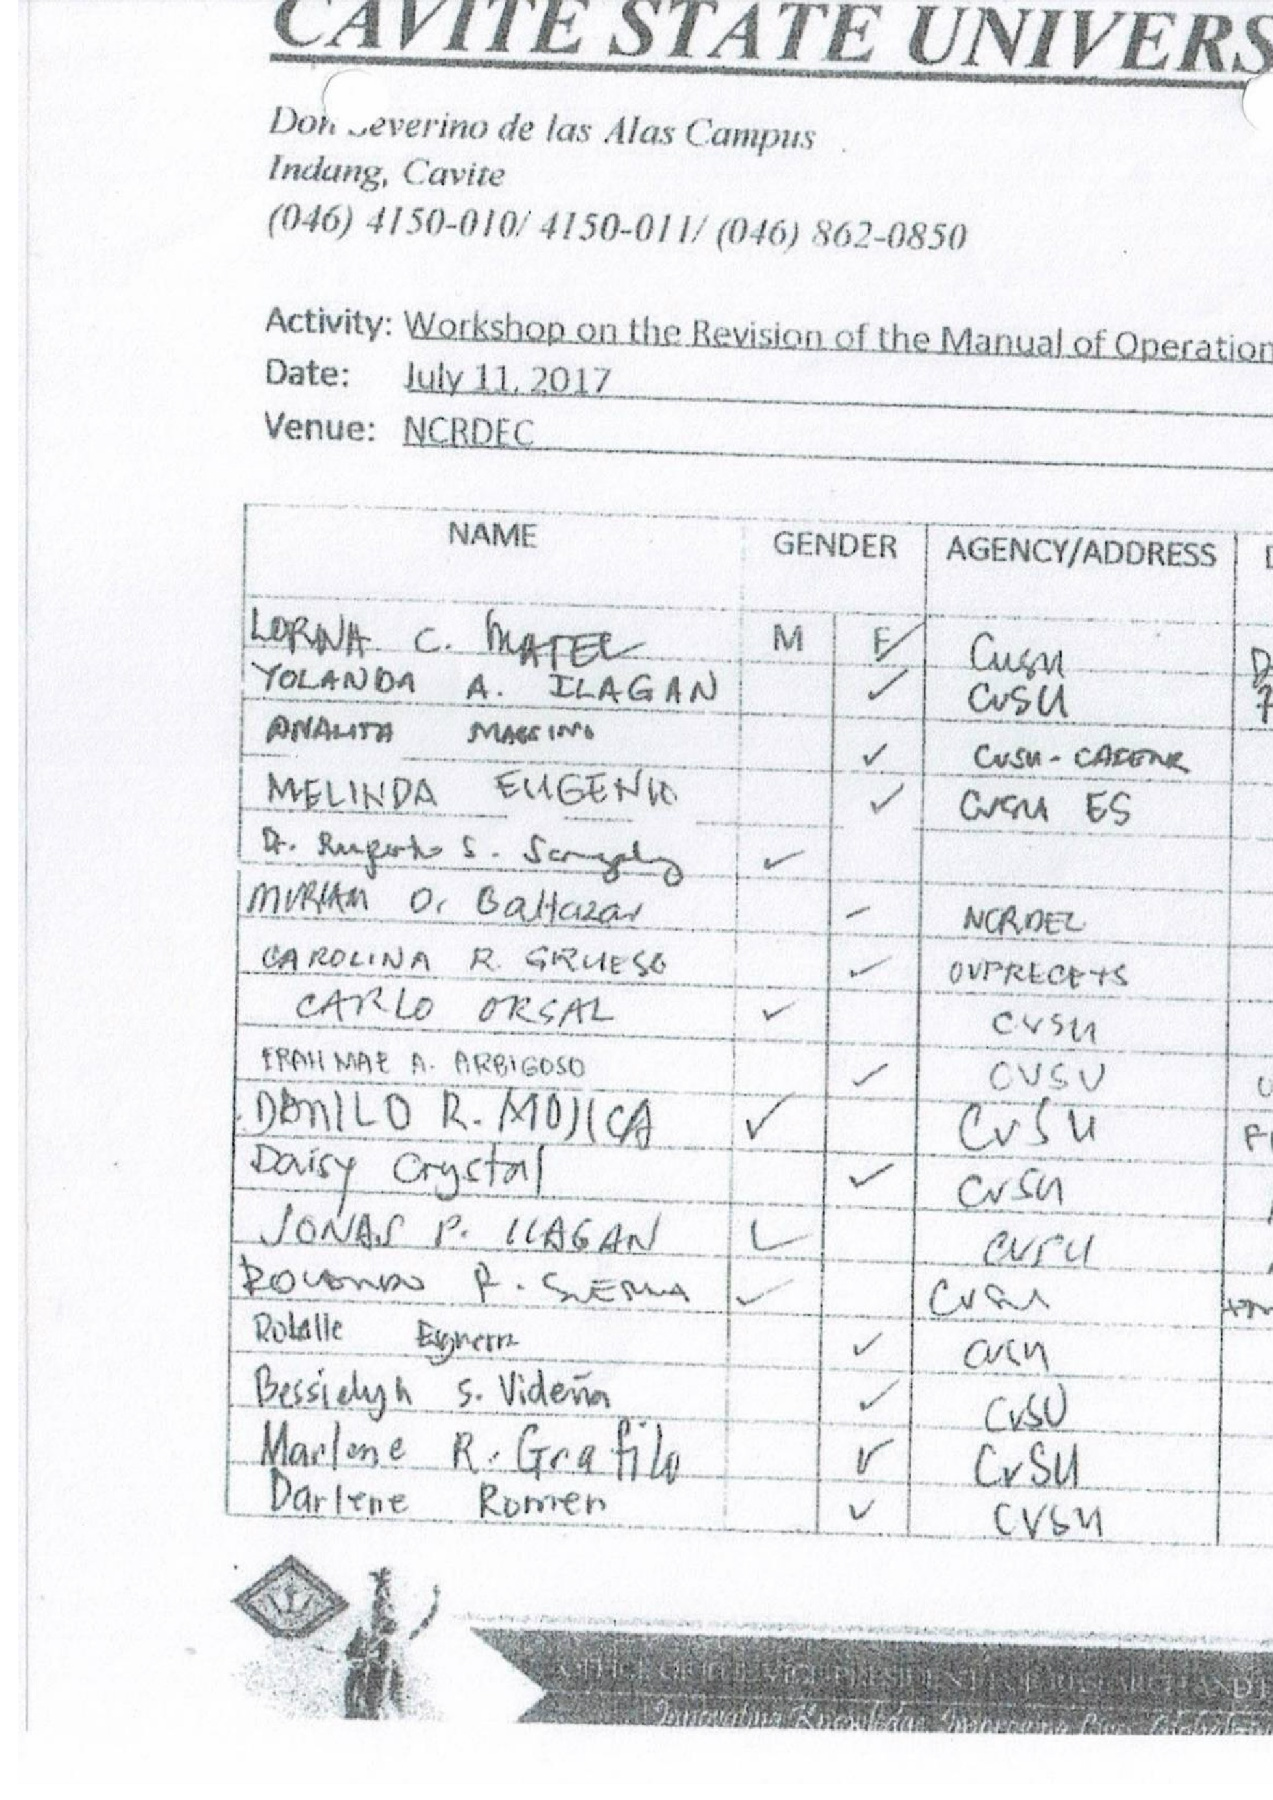 CAVITE STATE UNIVERS
Don Severino de las Alas Campus
Indang, Cavite
(046) 4150-010/ 4150-011/ (046) 862-0850
Activity: Workshop on the Revision of the Manual of Operation
Date: July 11, 2017
Venue: NCRDEC
NAME GENDER AGENCY/ADDRESS
LORNA C. MATEL M F ✓ CvSU
YOLANDA A. ILAGAN ✓ CvSU
ANALITA ✓ CvSU-CAFENR
MELINDA EUGENIO ✓ CvSU ES
Dr. S. ✓
MIRIAM D. Baltazar ✓ NCRDEC
CAROLINA R. GRUESO ✓ OVPRECETS
CARLO ORSAL ✓ CVSU
A. ARBIGOSO ✓ CVSU
DANILO R. MOJICA ✓ CvSU
Daisy Crystal ✓ CvSU
JONAS P. ILAGAN ✓ CVSU
P. ✓ CvSU
✓ CvSU
S. Videña ✓ CvSU
Marlene R. Grafilo ✓ CvSU
Darlene Romen ✓ CVSU
OFFICE OF THE VICE PRESIDENT FOR RESEARCH AND E